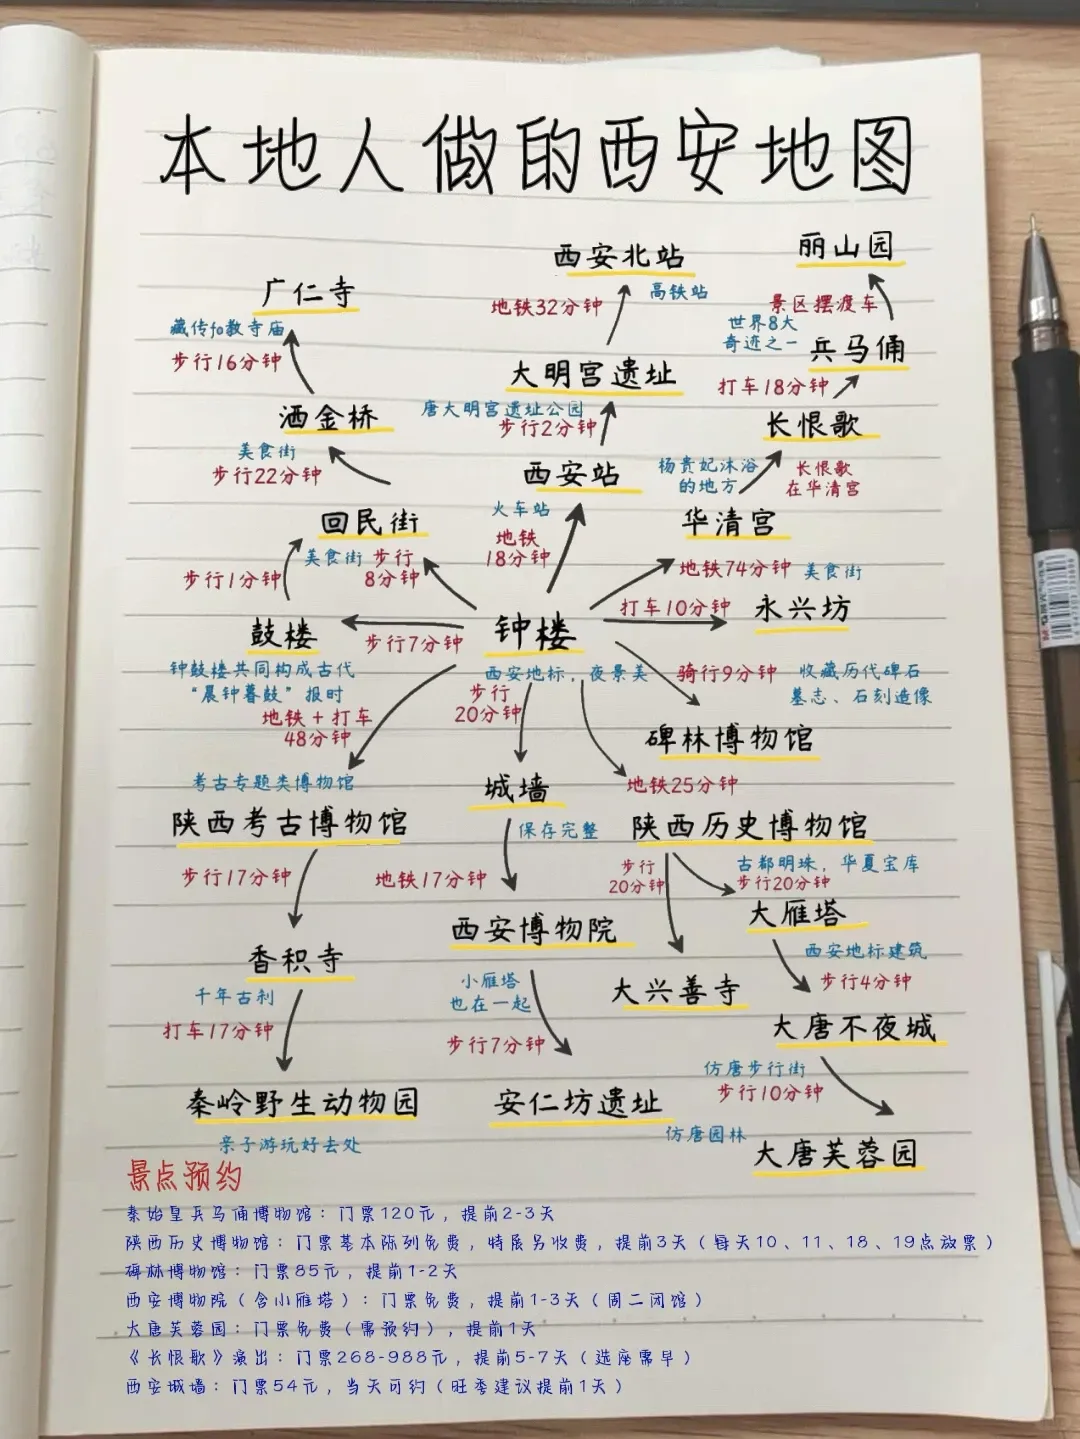 本地人做的西安地图
西安北站
丽山园
广仁寺
地铁32分钟
高铁站
景区摆渡车
藏传fo教寺庙
世界8大
奇迹之一
兵马俑
步行16分钟
大明宫遗址
打车18分钟
洒金桥
唐大明宫遗址公园
步行2分钟
长恨歌
美食街
步行22分钟
西安站
杨贵妃沐浴
的地方
长恨歌
在华清宫
火车站
回民街
华清宫
地铁
18分钟
美食街
步行
8分钟
步行1分钟
地铁74分钟
美食街
打车10分钟
永兴坊
鼓楼
步行7分钟
钟楼
钟鼓楼共同构成古代
“晨钟暮鼓”报时
西安地标，夜景美
骑行9分钟
收藏历代碑石
墓志、石刻造像
步行
20分钟
地铁+打车
48分钟
碑林博物馆
考古专题类博物馆
城墙
地铁25分钟
陕西考古博物馆
保存完整
陕西历史博物馆
步行17分钟
地铁17分钟
步行
20分钟
古都明珠，华夏宝库
步行20分钟
大雁塔
西安博物院
香积寺
西安地标建筑
步行4分钟
千年古刹
小雁塔
也在一起
大兴善寺
打车17分钟
步行7分钟
大唐不夜城
仿唐步行街
步行10分钟
秦岭野生动物园
安仁坊遗址
亲子游玩好去处
仿唐园林
大唐芙蓉园
景点预约
秦始皇兵马俑博物馆：门票120元，提前2-3天
陕西历史博物馆：门票基本陈列免费，特展另收费，提前3天（每天10、11、18、19点放票）
碑林博物馆：门票85元，提前1-2天
西安博物院（含小雁塔）：门票免费，提前1-3天（周二闭馆）
大唐芙蓉园：门票免费（需预约），提前1天
《长恨歌》演出：门票268-988元，提前5-7天（选座需早）
西安城墙：门票54元，当天可约（旺季建议提前1天）